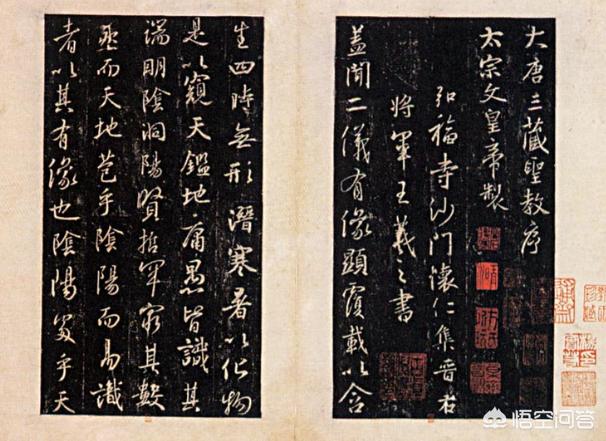 大唐三藏聖教序
太宗文皇帝製
弘福寺沙門懷仁集晉右
將軍王羲之書
蓋聞二儀有像顯覆載以含
生四時無形潛寒暑以化物
是以窺天鑑地庸愚皆識其
端明陰洞陽賢哲罕窮其數
然而天地苞乎陰陽而易識
者以其有像也陰陽處乎天
悟空问答